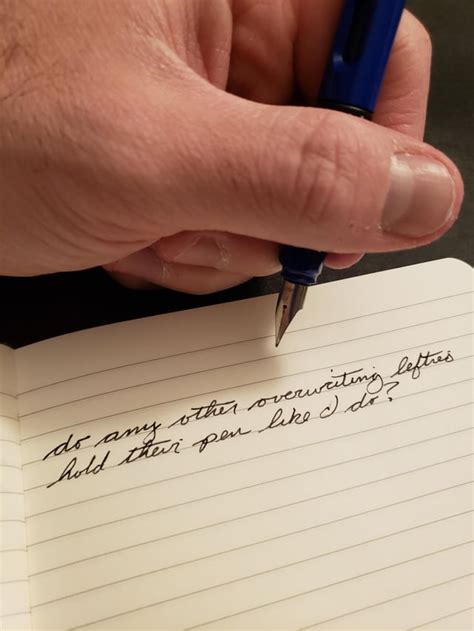 do any other overwriting lefties
hold their pen like I do?